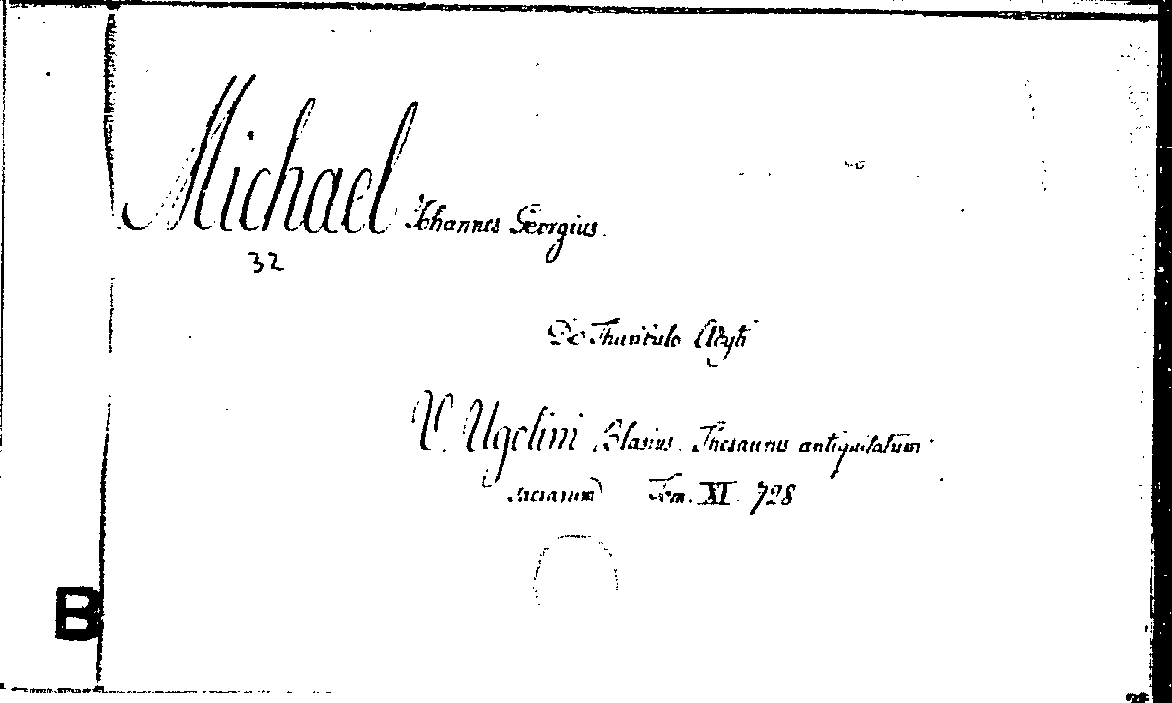 Michael Johannes Georgius.
32
De Thuribulo Adyti
V. Ugolini Blasius. Thesaurus antiquitatum
sacrarum Tom. XI. 728
B